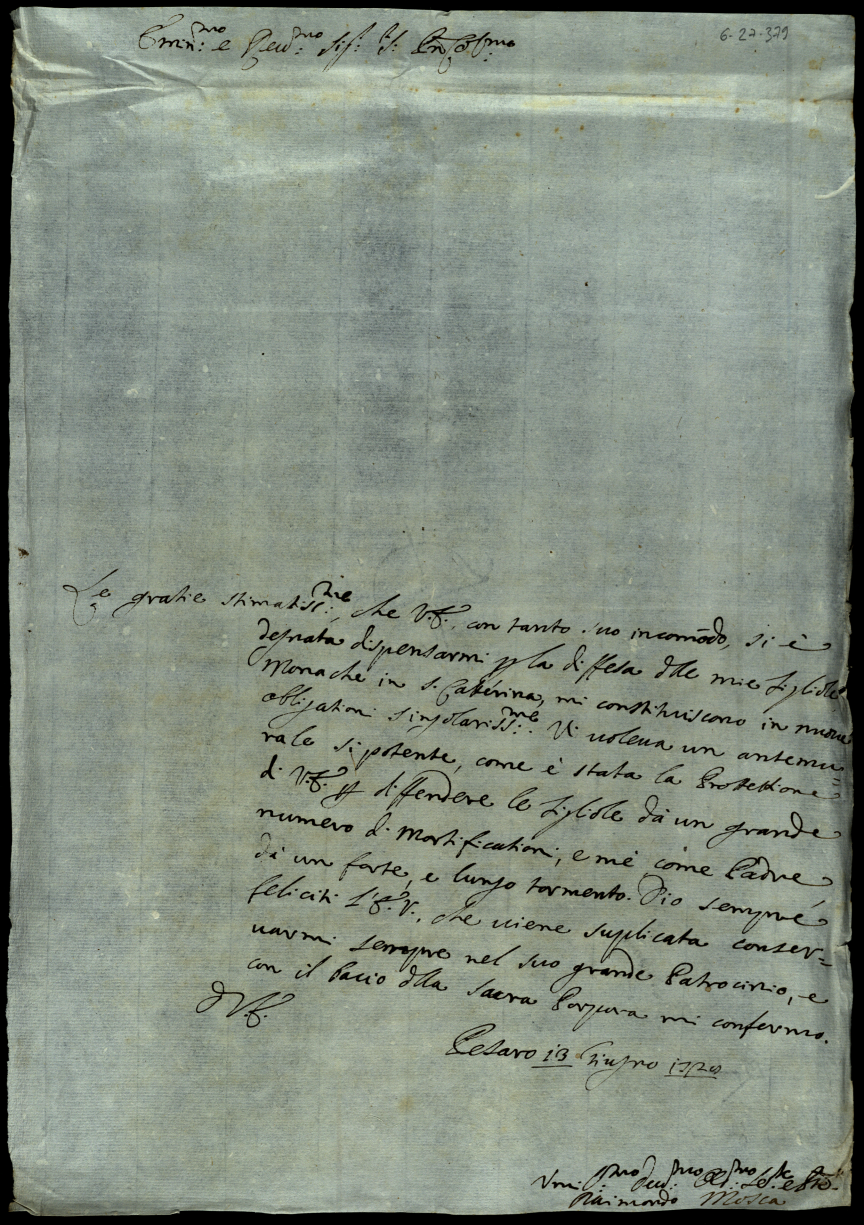 6-27-379
Emin:mo e Reu:mo Sig:r
Le gratie stimatiss:me, che V.E. con tanto suo incomõdo, si è
degnata dispensarmi p la diffesa dlle mie figliole
Monache in S. Caterina, mi constituiscono in nuoue
obligationi singolariss:me. Vi uoleua un antemu=
rale si potente, come è stata la Protettione
di V.E. p diffendere le figliole da un grande
numero di mortificationi, e me come Padre
da un forte, e lungo tormento. Dio sempre
feliciti l'E.V., che uiene suplicata conser=
uarmi sempre nel suo grande Patrocinio, e
con il bacio dlla sacra Porpora mi confermo.
D V.E.
Pesaro 13 Giugno
Raimondo Mosca